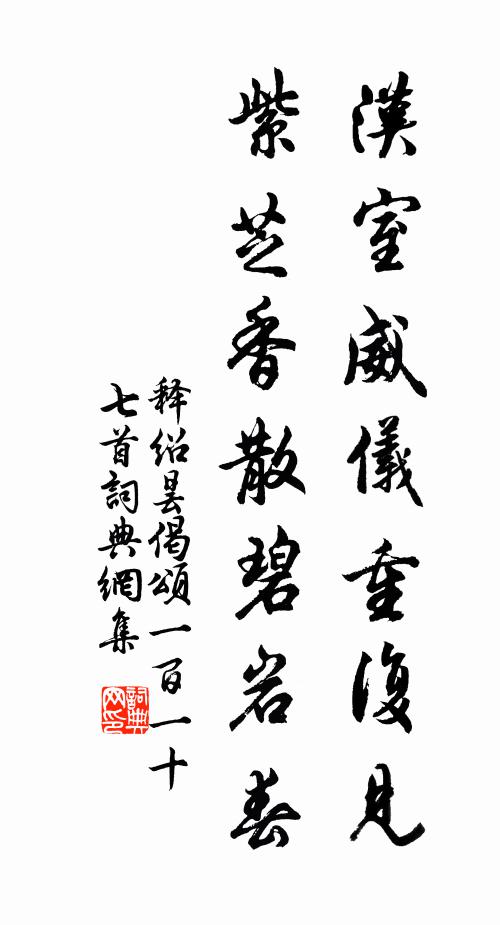 漢室威儀重復見
紫芝香散碧岩春
释紹曇偈頌一百一十
七首詞典網集
詞典網印